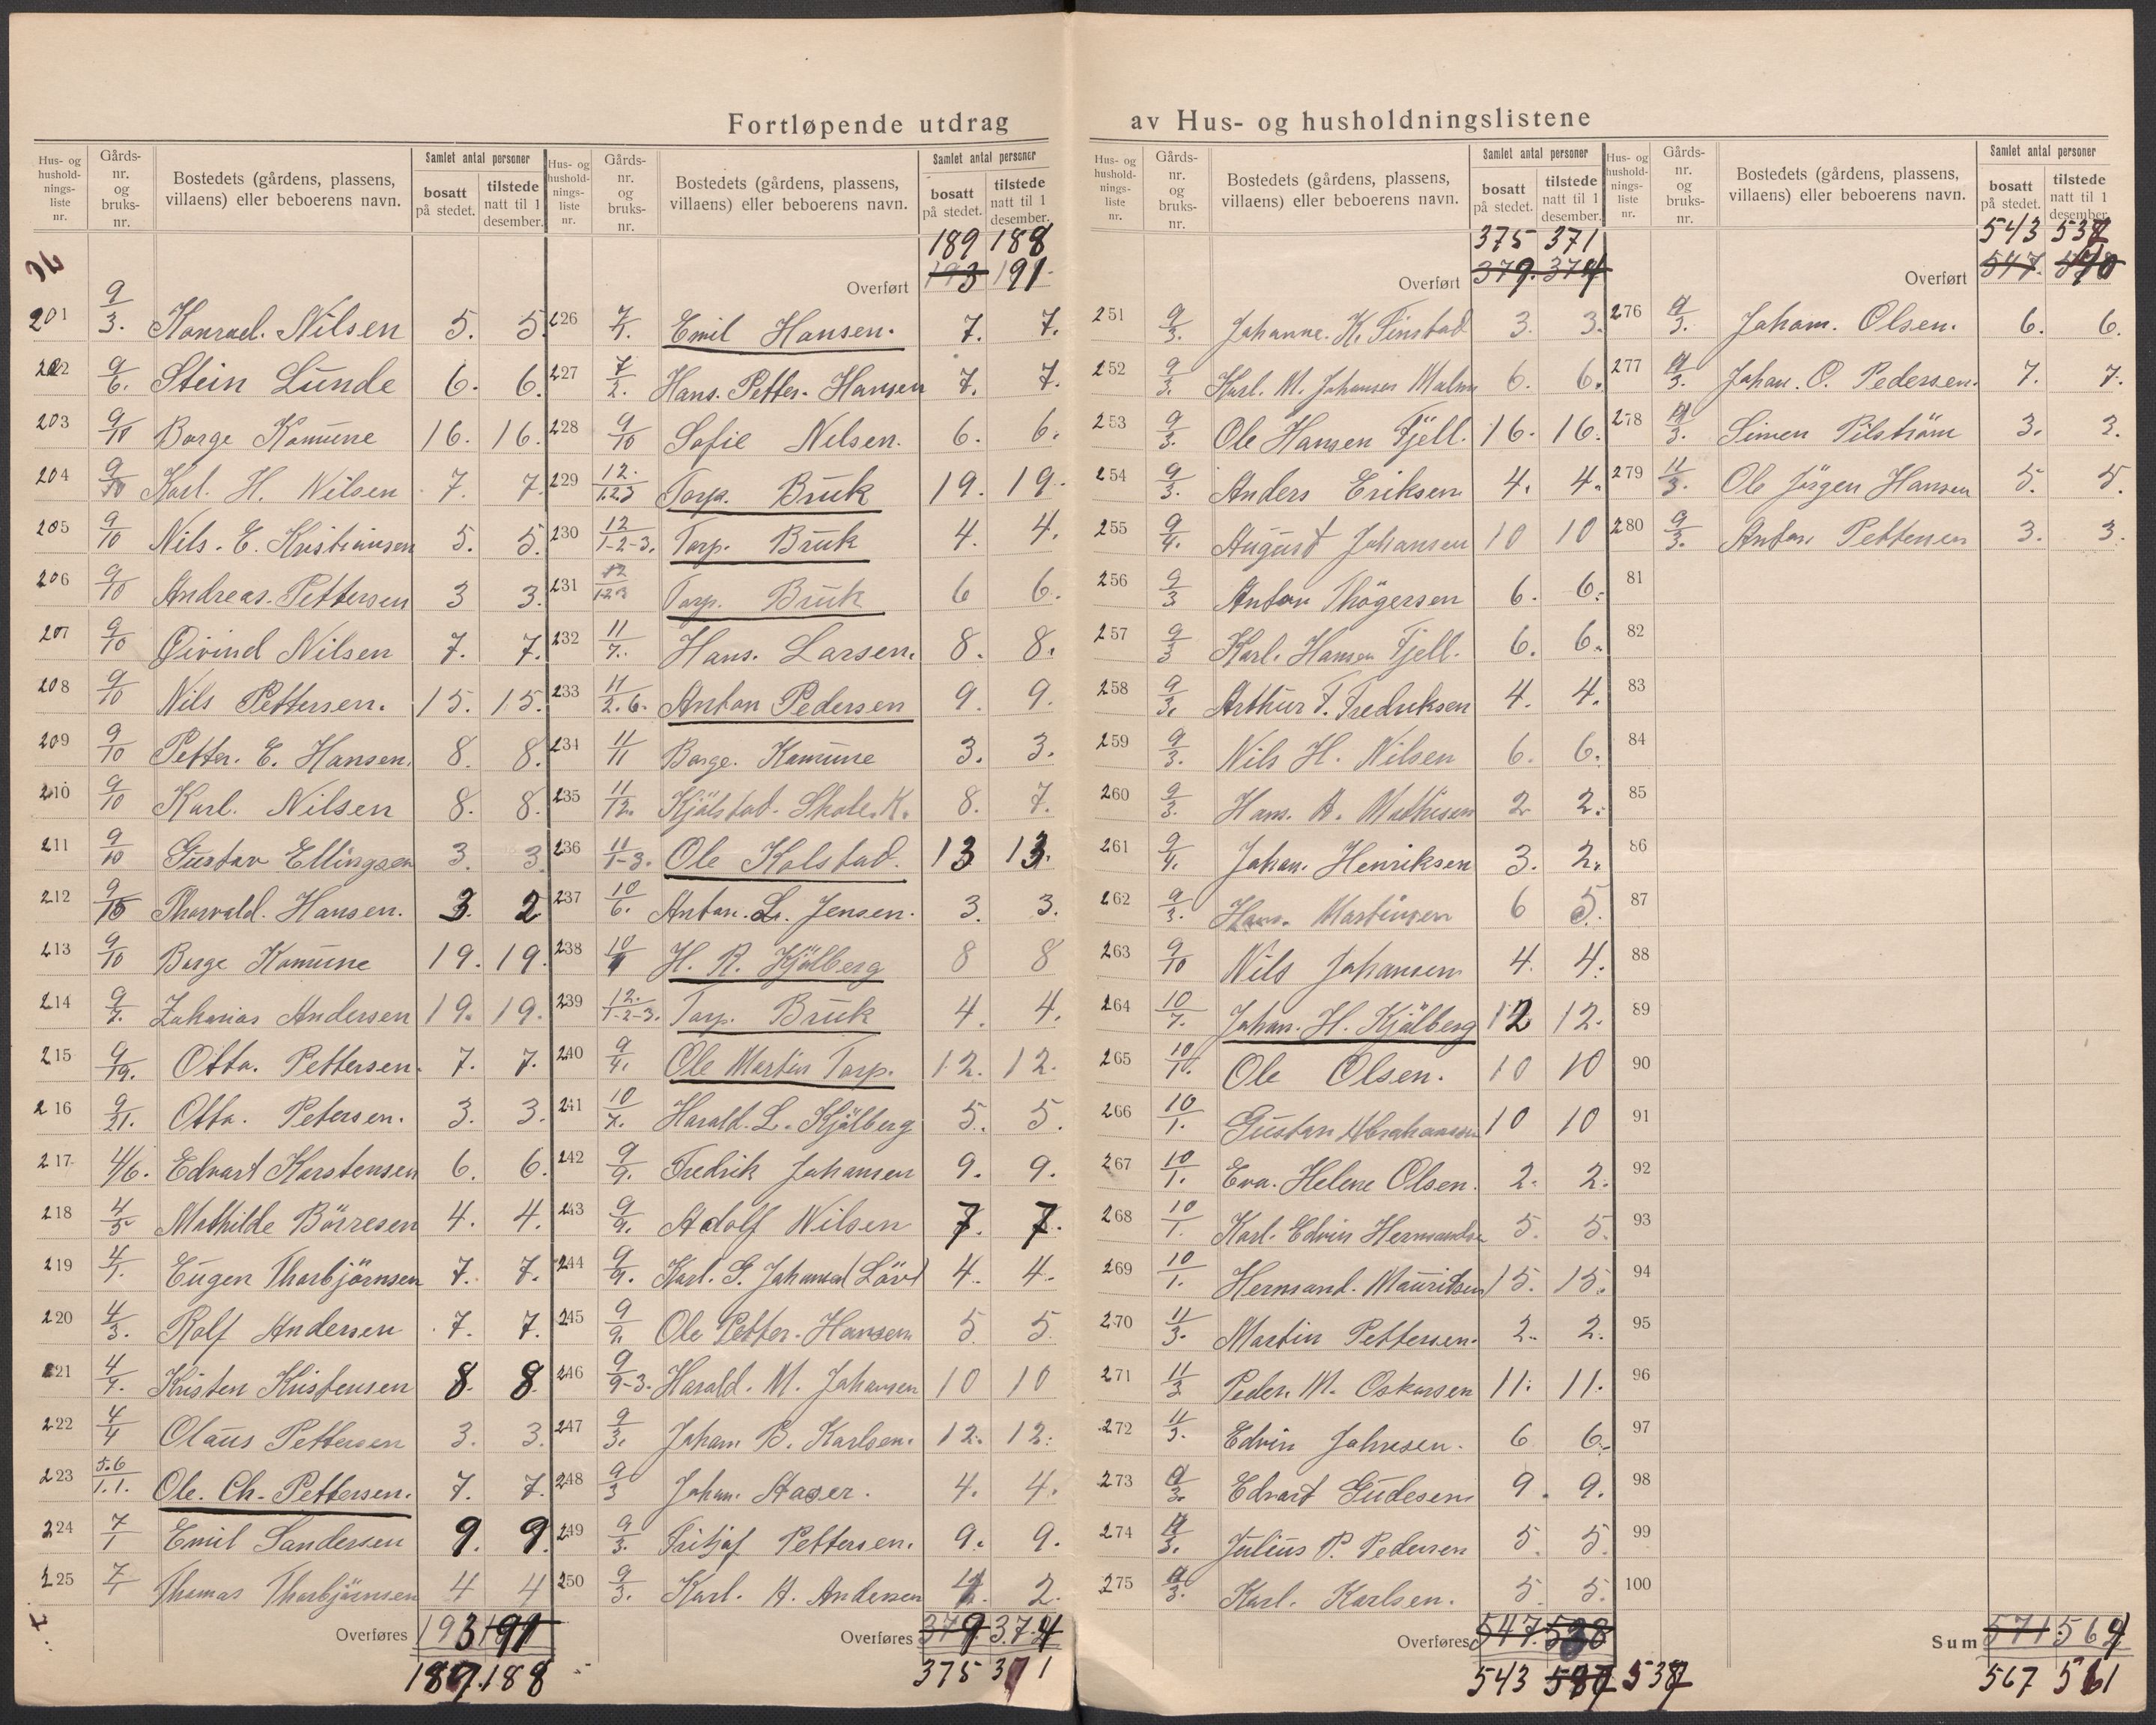 Fortløpende utdrag av Hus- og husholdningslistene
Hus- og husholdnings-liste nr. | Gårds-nr. og bruks-nr. | Bostedets (gårdens, plassens, villaens) eller beboerens navn. | Samlet antal personer | bosatt på stedet. | tilstede natt til 1 desember.
201 9/3. Konrad. Nilsen 5. 5.
202 9/6. Stein Lunde 6. 6.
203 9/10 Borge Komune 16. 16.
204 9/10 Karl. H. Nilsen 7. 7.
205 9/10 Nils. E. Kristiansen 5. 5.
206 9/10 Andreas. Pettersen 3 3.
207 9/10 Øivind Nilsen 7. 7.
208 9/10 Nils Pettersen. 15. 15.
209 9/10 Petter. E. Hansen. 8. 8.
210 9/10 Karl. Nilsen 8. 8.
211 9/10 Gustav Ellingsen 3. 3.
212 9/10 Thorvald. Hansen. 3. 2
213 9/10 Borge Komune 19. 19.
214 9/7. Zakarias Andersen 19. 19.
215 9/19. Otto. Pettersen. 7. 7.
216 9/21. Otto. Petersen. 3. 3.
217 4/6. Edvart Karstensen 6. 6.
218 4/5 Mathilde Börresen 4. 4.
219 4/1. Eugen Thorbjörnsen 7. 7.
220 4/3. Rolf Andersen 7. 7.
221 4/4. Kristen Kristensen 8. 8.
222 4/4 Olaus Pettersen 3. 3.
223 5.6/1.1. Ole. Ch. Pettersen. 7. 7.
224 7/1 Emil Sandersen 9. 9.
225 7/1 Thomas Thorbjörnsen 4 4
Overføres 193 191
189. 188
Hus- og husholdnings-liste nr. | Gårds-nr. og bruks-nr. | Bostedets (gårdens, plassens, villaens) eller beboerens navn. | Samlet antal personer | bosatt på stedet. | tilstede natt til 1 desember.
189 188
Overført 193 191.
226 7/1. Emil Hansen. 7. 7.
227 7/2. Hans. Petter. Hansen 7. 7.
228 9/10 Sofie Nilsen. 6. 6.
229 12./1.2.3 Torp. Bruk 19. 19.
230 12/1-2-3. Torp. Bruk 4. 4.
231 12/1.2.3 Torp. Bruk 6 6.
232 11/7. Hans. Larsen. 8. 8.
233 11/2.6. Anton Pedersen 9. 9.
234 11/11 Borge. Komune 3. 3.
235 11/12. Kjölstad. Skole. K. 8. 7.
236 11/1-3. Ole Kolstad. 13 13.
237 10/6. Anton. L. Jensen. 3. 3.
238 10/4 H. R. Kjölberg 8 8
239 12./1-2-3. Torp. Bruk 4. 4.
240 9/4. Ole Martin Torp. 12. 12.
241 10/7. Harald. L. Kjölberg 5. 5.
242 9/9. Fredrik Johansen 9. 9.
243 9/9. Adolf Nilsen 7. 7.
244 9/9. Karl. G. Johansen 4. 4.
245 9/9. Ole Petter. Hansen 5. 5.
246 9/9-3. Harald. M. Johansen 10 10
247 9/3. Johan B. Karlsen. 12. 12.
248 9/3 Johan. 4. 4.
249 9/3. Fritjof Pettersen. 9. 9.
250 9/3. Karl. A. Andersen 4. 2.
Overføres 379. 374
375 371
Hus- og husholdnings-liste nr. | Gårds-nr. og bruks-nr. | Bostedets (gårdens, plassens, villaens) eller beboerens navn. | Samlet antal personer | bosatt på stedet. | tilstede natt til 1 desember.
375 371
Overført 379. 374
251 9/3. Johanne. K. Finstad 3. 3.
252 9/3. Karl. M. Johansen Malm 6. 6.
253 9/3. Ole Hansen Fjell. 16. 16.
254 9/3. Anders Eriksen 4. 4.
255 9/4. August Johansen 10 10
256 9/3 Anton Thögersen 6. 6.
257 9/3 Karl. Hansen Fjell. 6. 6.
258 9/3. Arthur F. Fredriksen 4. 4.
259 9/3. Nils H. Nilsen 6. 6.
260 9/3. Hans. A. Mathisen 2 2.
261 9/4. Johan. Henriksen 3. 2.
262 9/3. Hans. Martinsen 6 5.
263 9/10 Nils Johansen 4. 4.
264 10/7. Johan. H. Kjölberg 12 12.
265 10/10. Ole Olsen. 10 10
266 10/1. Gustav Abrahamsen 10 10
267 10/1. Eva. Helene Olsen. 2. 2.
268 10/1. Karl. Edvin 5. 5.
269 10/1. Hermand. Mauritsen 15. 15.
270 11/3. Martin Pettersen. 2. 2.
271 11/3 Peder. M. Oskarsen 11. 11.
272 11/3. Edvin Johnsen. 6 6.
273 9/3. Edvart Gudesen 9. 9.
274 9/3. Julius P. Pedersen 5. 5.
275 9/3. Karl. Karlsen. 5. 5.
Overføres 547. 538
543 537
Hus- og husholdnings-liste nr. | Gårds-nr. og bruks-nr. | Bostedets (gårdens, plassens, villaens) eller beboerens navn. | Samlet antal personer | bosatt på stedet. | tilstede natt til 1 desember.
543 537
Overført 547. 540
276 9/3. Johan. Olsen. 6. 6.
277 9/3. Johan. O. Pedersen. 7. 7.
278 9/3. Simen Pilström 3. 3.
279 11/3. Ole Jörgen Hansen 5. 5.
280 9/3. Anton Pettersen 3. 3.
81
82
83
84
85
86
87
88
89
90
91
92
93
94
95
96
97
98
99
100
Sum 571. 564
567 561